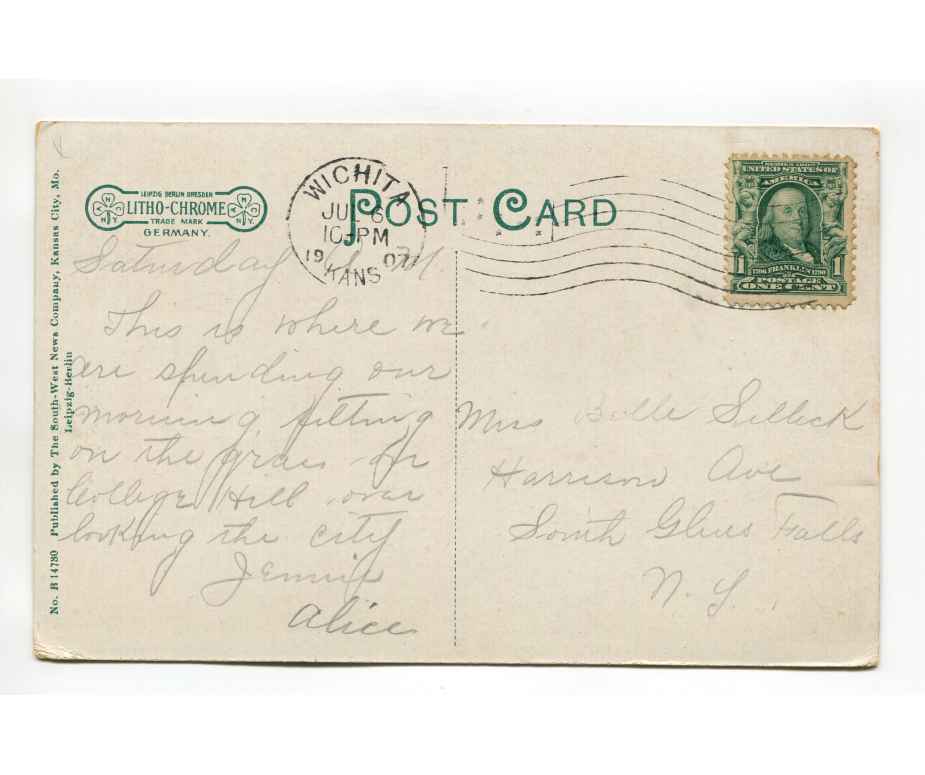 LEIPZIG BERLIN DRESDEN
LITHO-CHROME
TRADE MARK
GERMANY.
POST CARD
WICHITA
JUL 6
10-PM
1907
KANS
UNITED STATES OF
AMERICA
1 1706 FRANKLIN 1790 1
POSTAGE
ONE CENT
No. B 14780 Published by The South-West News Company, Kansas City, Mo.
Leipzig-Berlin
Saturday
This is where we
are spending our
morning, sitting
on the grass on
College Hill over
looking the city
Jennie
Alice
Miss Belle Selleck
Harrison Ave
South Glens Falls
N. Y.